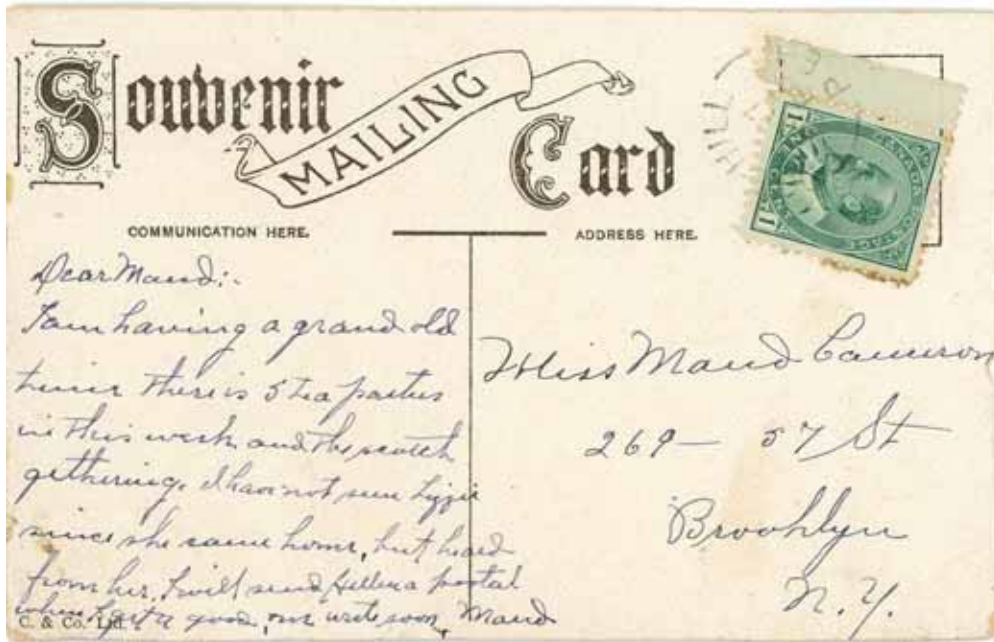 Souvenir
MAILING
Card
HILL
CANADA POSTAGE
ONE CENT
1 1
COMMUNICATION HERE.
ADDRESS HERE.
Dear Maud:-
I am having a grand old
time there is 5 tea parties
in this week and the scotch
gathering. I have not seen Lizzie
since she came home, but heard
from her, I will send Hellen a postal
when I get a good, one write soon, Maud
C. & Co. Ltd.
Miss Maud Cameron
269 — 57 St
Brooklyn
N. Y.